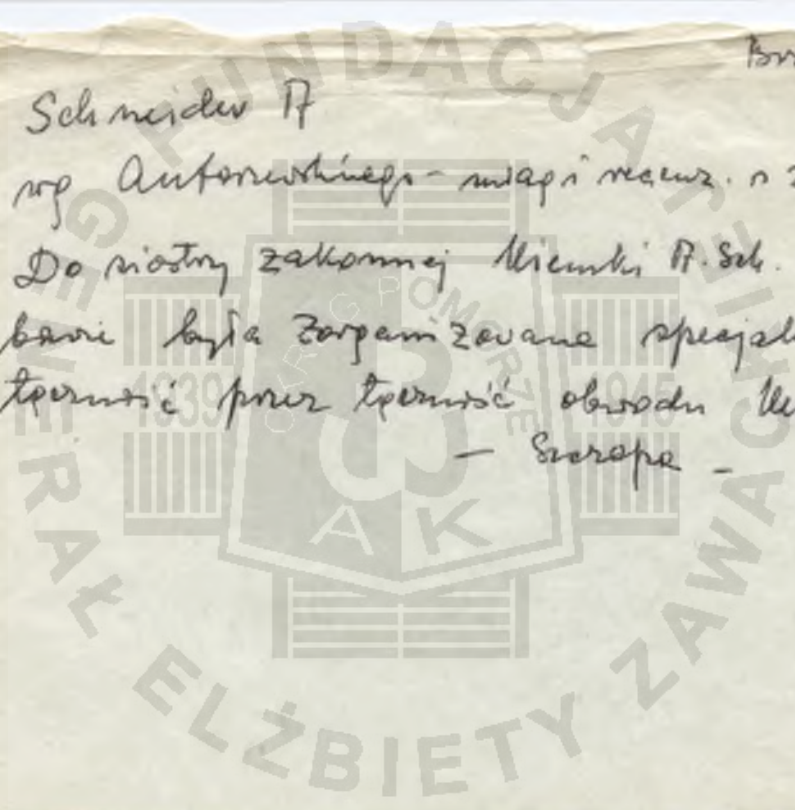 Bro
Schneider A
wg Antoszewskiego - uwagi recenz. s 2
Do siostry zakonnej Niemki A. Sch.
była zorganizowana specjal
łączność przez łączność obwodu
- Szarapa -
FUNDACJA GENERAŁ ELŻBIETY ZAWAC
OKRĘG POMORZE
1939 1945
AK